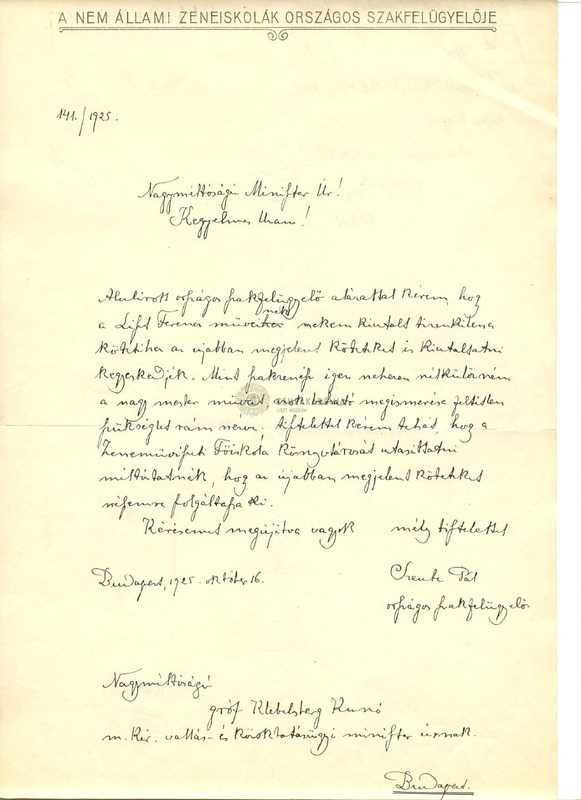 A NEM ÁLLAMI ZENEISKOLÁK ORSZÁGOS SZAKFELÜGYELŐJE
141./1925.
Nagyméltóságú Miniszter Úr!
Kegyelmes Uram!
Alulírott országos szakfelügyelő alázattal kérem, hogy
a Liszt Ferenc műveinek nekem kiutalt tizenkilenc
kötetéhez az újabban megjelent köteteket is kiutaltatni
kegyeskedjék. Mint igen nehezen nélkülözném
a nagy mester műveit, azok beható megismerése feltétlen
szükséges rám nézve. Tisztelettel kérem tehát, hogy a
Zeneművészeti Főiskola könyvtárosát utasíttatni
méltóztatnék, hogy az újabban megjelent köteteket
részemre szolgáltassa ki.
Kérésemet megújítva vagyok mély tisztelettel
Budapest, 1925. október 16.
Pál
országos szakfelügyelő.
Nagyméltóságú
gróf Klebelsberg Kunó
m. kir. vallás- és közoktatásügyi miniszter úrnak.
Budapest.